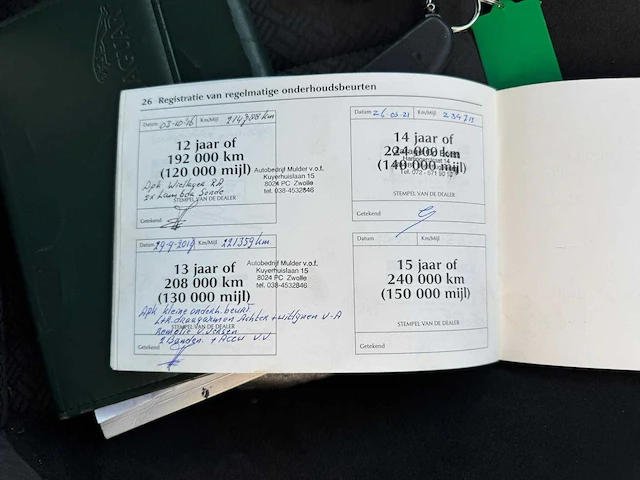 JAGUAR
26 Registratie van regelmatige onderhoudsbeurten
Datum 03-10-16 Km/Mijl 214788 km
12 jaar of
192 000 km
(120 000 mijl)
Apk Wiellager RA
2x Lambda Sonde
STEMPEL VAN DE DEALER
Getekend
Autobedrijf Mulder v.o.f.
Kuyerhuislaan 15
8024 PC Zwolle
tel. 038-4532846
Datum 29-9-2019 Km/Mijl 221359 km
13 jaar of
208 000 km
(130 000 mijl)
Apk kleine onderh. beurt
L+R draagarmen Achter + uitlijnen V-A
STEMPEL VAN DE DEALER
Remolie V.Versen
2 Banden + Accu V.V.
Getekend
Autobedrijf Mulder v.o.f.
Kuyerhuislaan 15
8024 PC Zwolle
tel. 038-4532846
Datum 26-05-21 Km/Mijl 234713
14 jaar of
224 000 km
(140 000 mijl)
Tel. 072 - 571
STEMPEL VAN DE DEALER
Getekend
Datum Km/Mijl
15 jaar of
240 000 km
(150 000 mijl)
STEMPEL VAN DE DEALER
Getekend